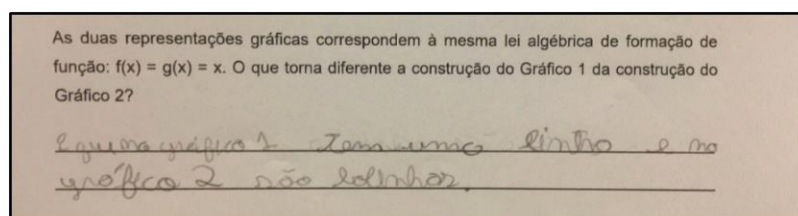 As duas representações gráficas correspondem à mesma lei algébrica de formação de
função: f(x) = g(x) = x. O que torna diferente a construção do Gráfico 1 da construção do
Gráfico 2?
e que no gráfico 1 tem uma linha e no
gráfico 2 são bolinhas.